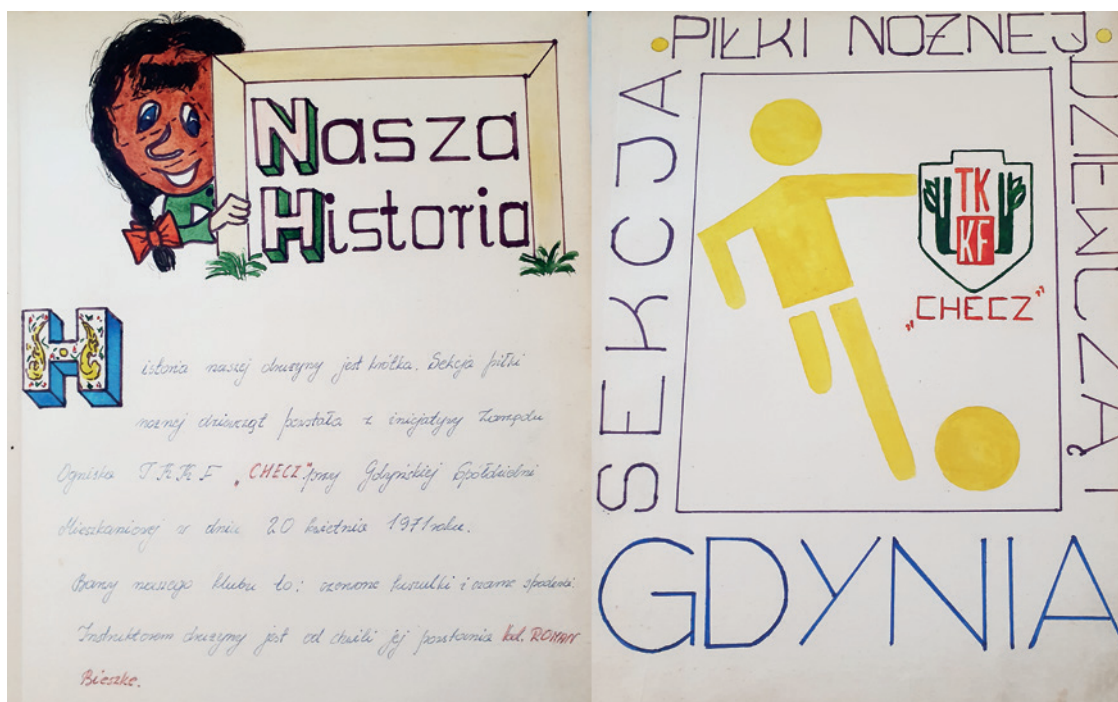 Nasza
Historia
Historia naszej drużyny jest krótka. Sekcja piłki
nożnej dziewcząt powstała z inicjatywy Zarządu
Ogniska TKKF „CHECZ" przy Gdyńskiej Spółdzielni
Mieszkaniowej w dniu 20 kwietnia 1971 roku.
Barwy naszego klubu to: czerwone koszulki i czarne spodenki.
Instruktorem drużyny jest od chwili jej powstania kol. ROMAN
Bieszke.
SEKCJA
PIŁKI NOŻNEJ
DZIEWCZĄT
TK
KF
„CHECZ"
GDYNIA